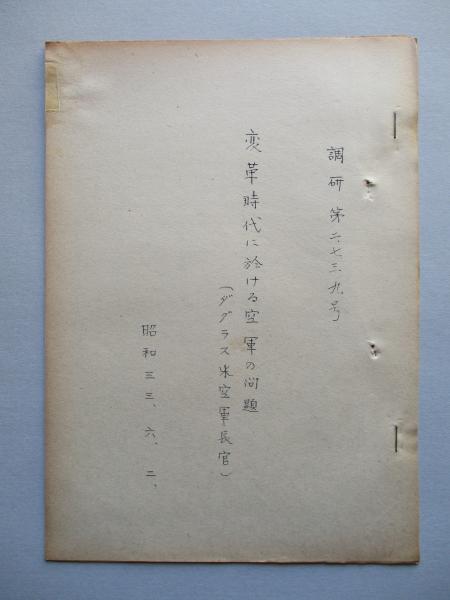 調研第二七三九号
変革時代に於ける空軍の問題
(ダグラス米空軍長官)
昭和三三、六、二、